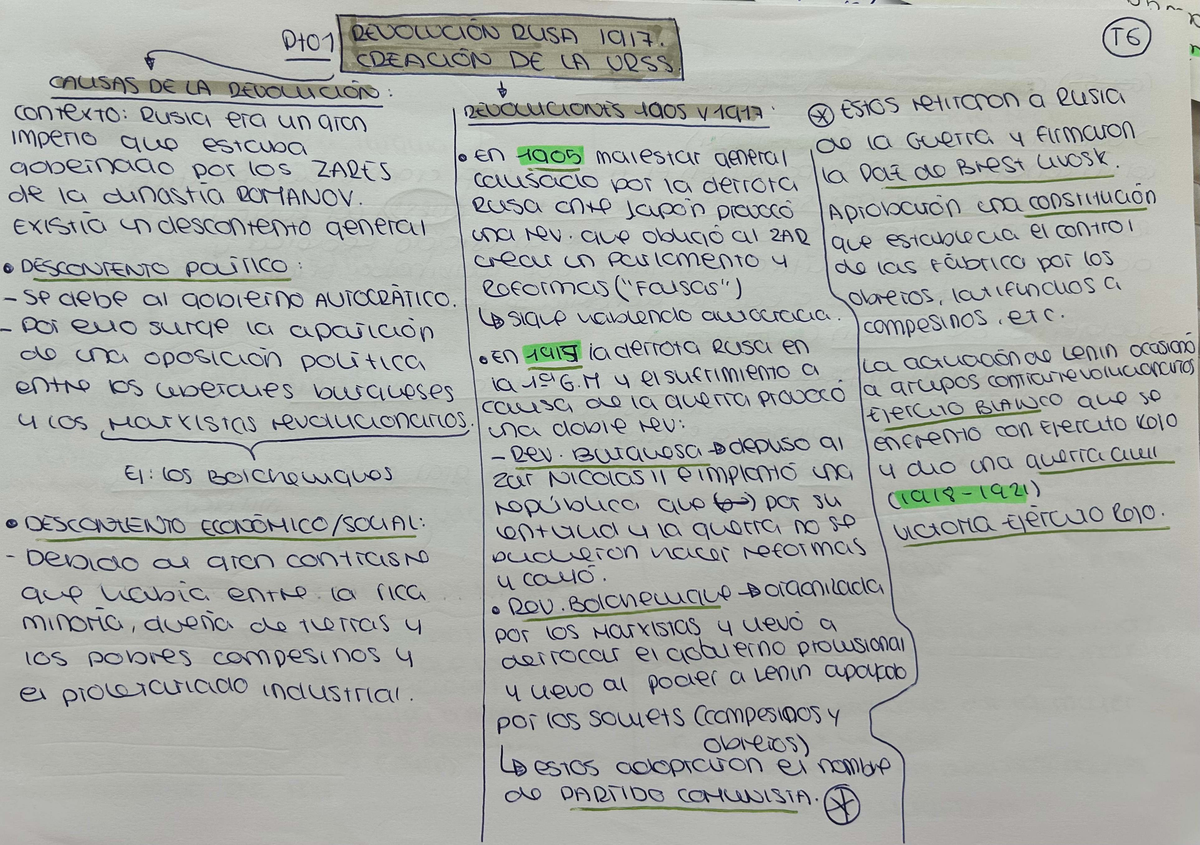 Pto1
REVOLUCIÓN RUSA 1917.
CREACIÓN DE LA URSS
T6
CAUSAS DE LA REVOLUCIÓN:
contexto: Rusia era un gran
imperio que estaba
gobernado por los ZARES
de la dinastía ROMANOV.
Existía un descontento general
• DESCONTENTO POLÍTICO:
- Se debe al gobierno AUTOCRÁTICO.
- Por ello surge la aparición
de una oposición política
entre los liberales burgueses
y los Marxistas revolucionarios.
Ej: los Bolcheviques
• DESCONTENTO ECONÓMICO/SOCIAL:
- Debido al gran contraste
que había entre la rica
minoría, dueña de tierras y
los pobres campesinos y
el proletariado industrial.
REVOLUCIONES 1905 Y 1917:
• En 1905 malestar general
causado por la derrota
Rusa ante Japón provocó
una rev. que obligó al ZAR
crear un parlamento y
Reformas ("Falsas")
↳ sigue habiendo autocracia.
• En 1917 la derrota Rusa en
la 1ª G.M y el sufrimiento a
causa de la guerra provocó
una doble rev:
- Rev. Burguesa → depuso al
zar Nicolas II e implantó una
república que por su
lentitud y la guerra no se
pudieron hacer reformas
y cayó.
• Rev. Bolchevique → organizada
por los Marxistas y llevó a
derrocar el gobierno provisional
y llevo al poder a Lenin apoyado
por los soviets (campesinos y
obreros)
↳ estos adoptaron el nombre
de PARTIDO COMUNISTA. *
* Estos retiraron a Rusia
de la Guerra y firmaron
la Paz de Brest Livosk.
Aprobación una constitución
que establecía el control
de las fábrica por los
obreros, latifundios a
campesinos, etc.
La actuación de Lenin ocasionó
a grupos contrarrevolucionarios
Ejército BLANCO que se
enfrento con Ejército Rojo
y dio una guerra civil
(1918-1921)
Victoria Ejército Rojo.